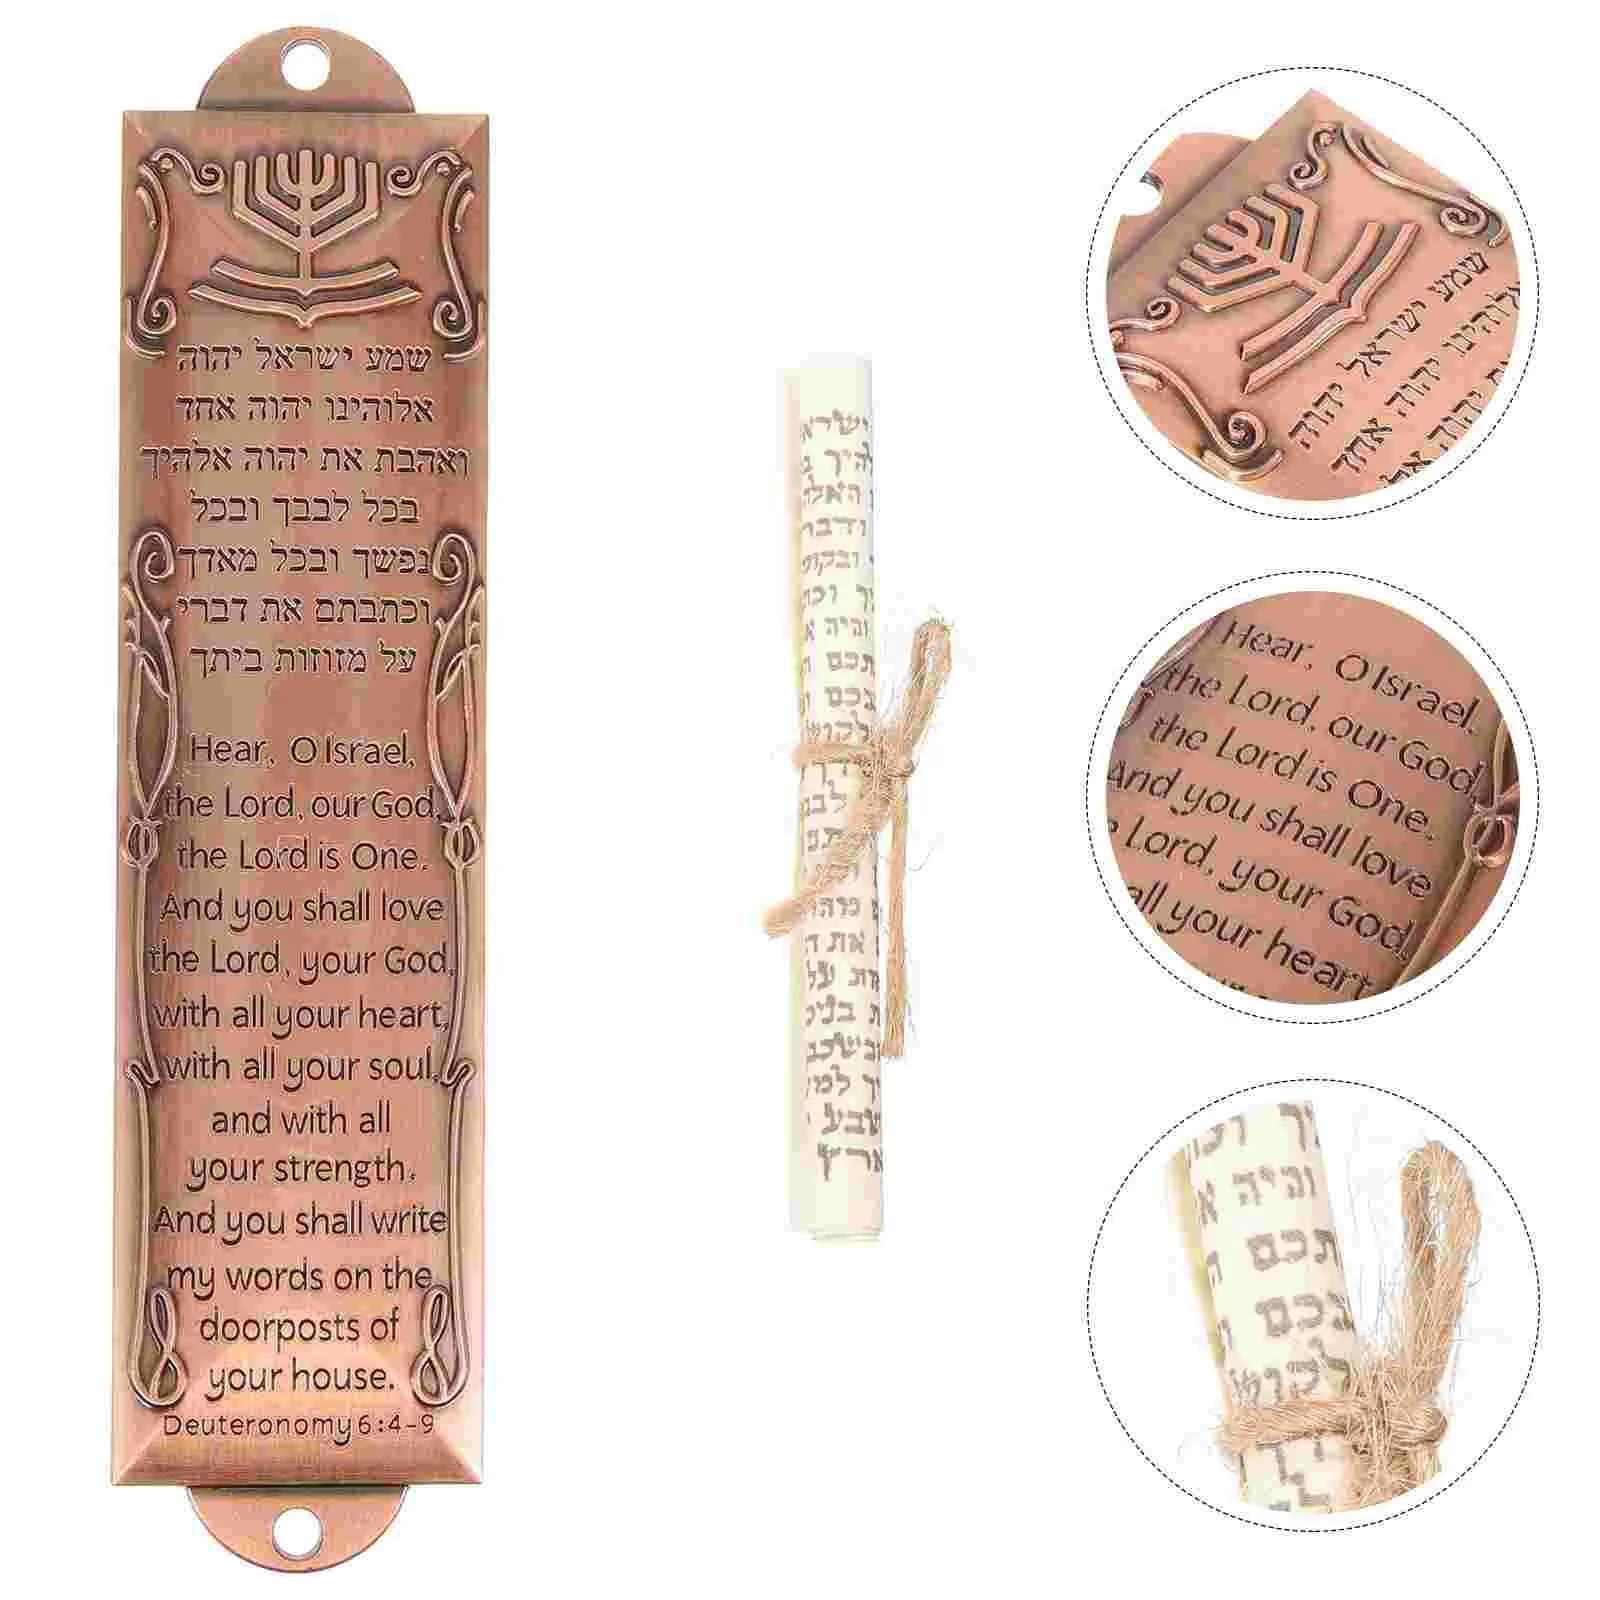 שמע ישראל יהוה
אלוהינו יהוה אחד
ואהבת את יהוה אלהיך
בכל לבבך ובכל
נפשך ובכל מאדך
וכתבתם את דברי
על מזוזות ביתך
Hear, O Israel,
the Lord, our God,
the Lord is One.
And you shall love
the Lord, your God,
with all your heart,
with all your soul,
and with all
your strength.
And you shall write
my words on the
doorposts of
your house.
Deuteronomy 6:4-9
ישרא
ודבר
וכת
והיה א
תכם
בכם
לקוש
את ד
ות על
למ
שבע
ארץ
שמע ישראל יהוה
יהוה אחד
Hear, O Israel,
the Lord, our God,
the Lord is One.
And you shall love
Lord, your God,
all your heart
והיה א
תכם
בכם
לקוש